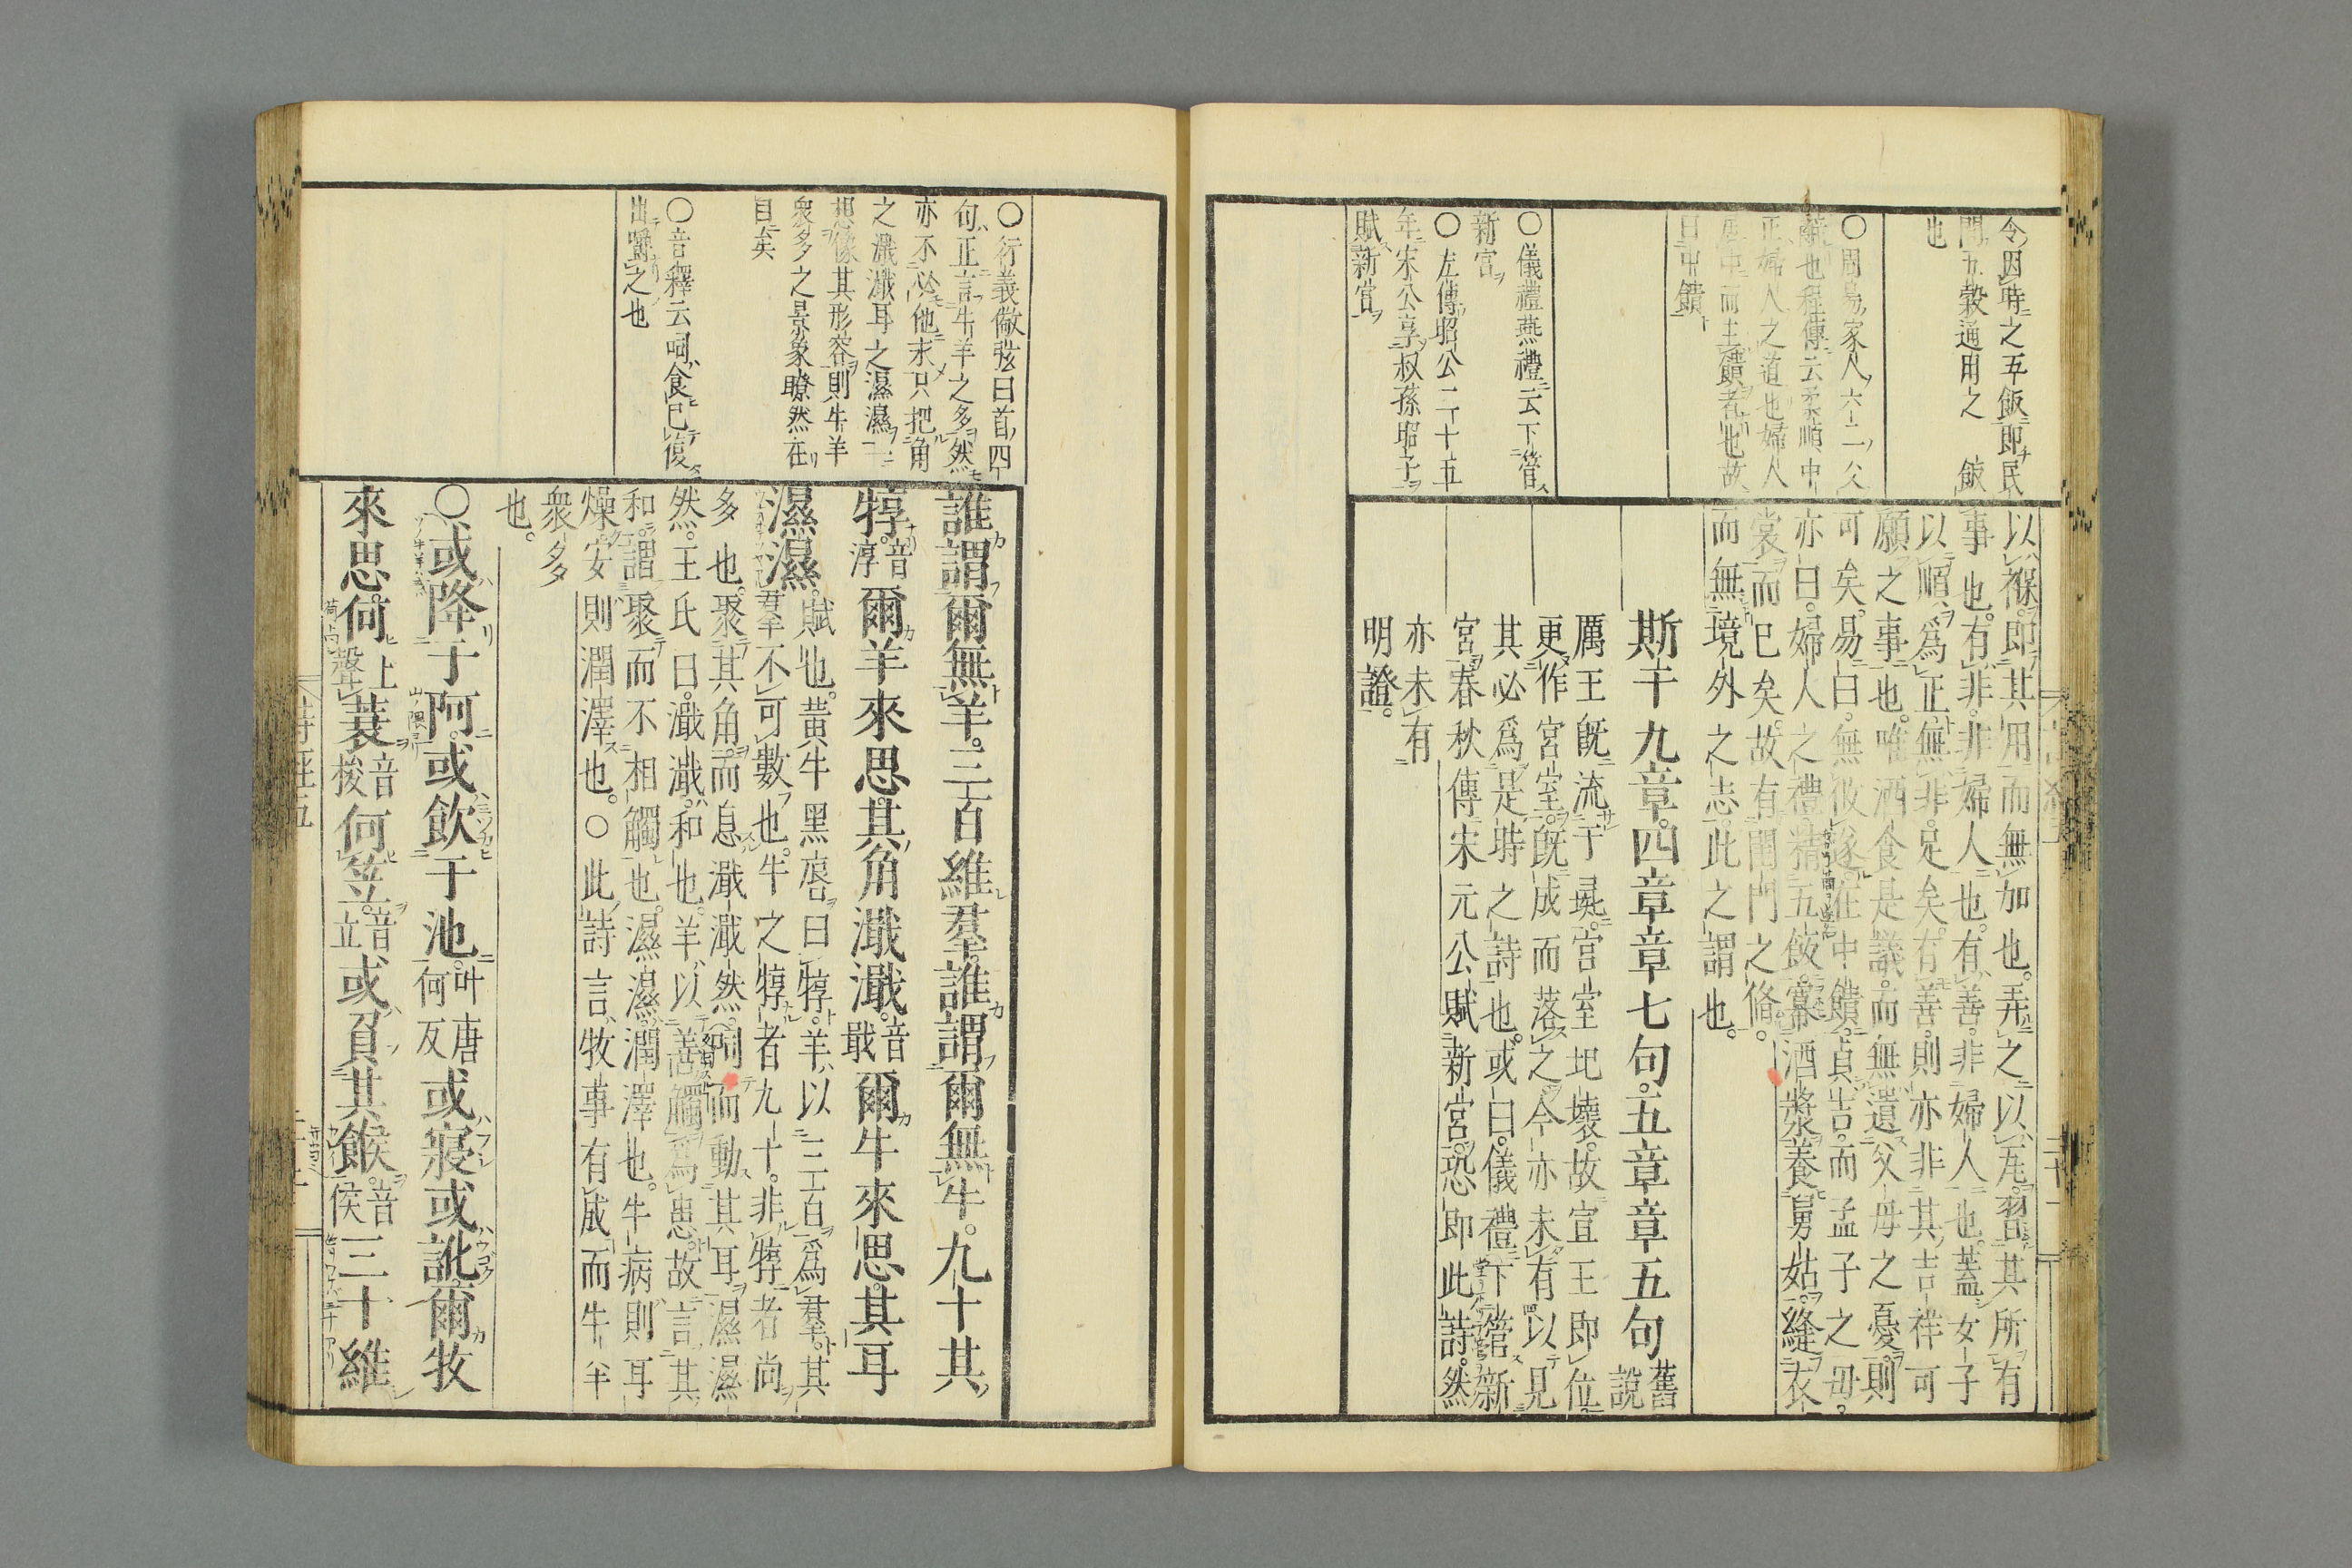 令因時之五飯即民
間五穀通用之飯
也
〇周易家人六二爻
辭也程傳云柔順中
正婦人之道也婦人
居中而主饋者也故
曰中饋
〇儀禮燕禮云下管
新宮
〇左傳昭公二十五
年宋公享叔孫昭子
賦新宮
以褓即其用而無加也弄之以瓦習其所有
事也有非非婦人也有善非婦人也蓋女子
以順爲正無非足矣有善則亦非其吉祥可
願之事也唯酒食是議而無遺父母之憂則
可矣易曰無攸遂在中饋貞吉而孟子之母
亦曰婦人之禮精五飯冪酒漿養舅姑縫衣
裳而已矣故有閨門之脩
而無境外之志此之謂也
斯干九章四章章七句五章章五句 舊說
厲王既流于彘宮室圮壞故宣王即位
更作宮室既成而落之今亦未有以見
其必爲是時之詩也或曰儀禮下管新
宮春秋傳宋元公賦新宮恐即此詩然
亦未有
明證
〇衍義儆弦曰首四
句正言牛羊之多然
亦不必他求只把角
之濈濈耳之濕濕一
想像其形容則牛羊
衆多之景象瞭然在
目矣
〇音釋云呞食已復
出嚼之也
誰謂爾無羊三百維羣誰謂爾無牛九十其
犉音淳爾羊來思其角濈濈音戢爾牛來思其耳
濕濕賦也黃牛黑脣曰犉羊以三百爲羣其
羣不可數也牛之犉者九十非犉者尚
多也聚其角而息濈濈然呞而動其耳濕濕
然王氏曰濈濈和也羊以善觸爲患故言其
和謂聚而不相觸也濕濕潤澤也牛病則耳
燥安則潤澤也〇此詩言牧事有成而牛羊
衆多
也
〇或降于阿或飲于池叶唐何反或寢或訛爾牧
來思何上聲蓑音梭何笠音立或負其餱音侯三十維